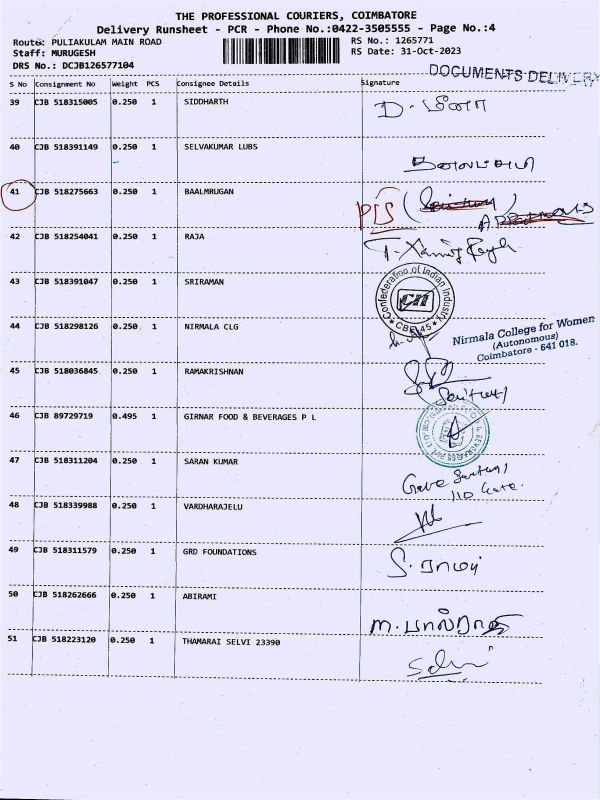 THE PROFESSIONAL COURIERS, COIMBATORE
Delivery Runsheet - PCR - Phone No.:0422-3505555 - Page No.:4
Route: PULIAKULAM MAIN ROAD RS No.: 1265771
Staff: MURUGESH RS Date: 31-Oct-2023
DRS No.: DCJB126577104 DOCUMENTS DELIVERY
S No Consignment No Weight PCS Consignee Details Signature
39 CJB 518315005 0.250 1 SIDDHARTH D. மீனா
40 CJB 518391149 0.250 1 SELVAKUMAR LUBS
41 CJB 518275663 0.250 1 BAALMRUGAN PIS
42 CJB 518254041 0.250 1 RAJA
43 CJB 518391047 0.250 1 SRIRAMAN Confederation of Indian Industry CII CBE-45
44 CJB 518298126 0.250 1 NIRMALA CLG Nirmala College for Women
(Autonomous)
Coimbatore - 641 018.
45 CJB 518036845 0.250 1 RAMAKRISHNAN
46 CJB 89729719 0.495 1 GIRNAR FOOD & BEVERAGES P L
47 CJB 518311204 0.250 1 SARAN KUMAR
48 CJB 518339988 0.250 1 VARDHARAJELU
49 CJB 518311579 0.250 1 GRD FOUNDATIONS S. ராமு
50 CJB 518262666 0.250 1 ABIRAMI
51 CJB 518223120 0.250 1 THAMARAI SELVI 23390 Selvi